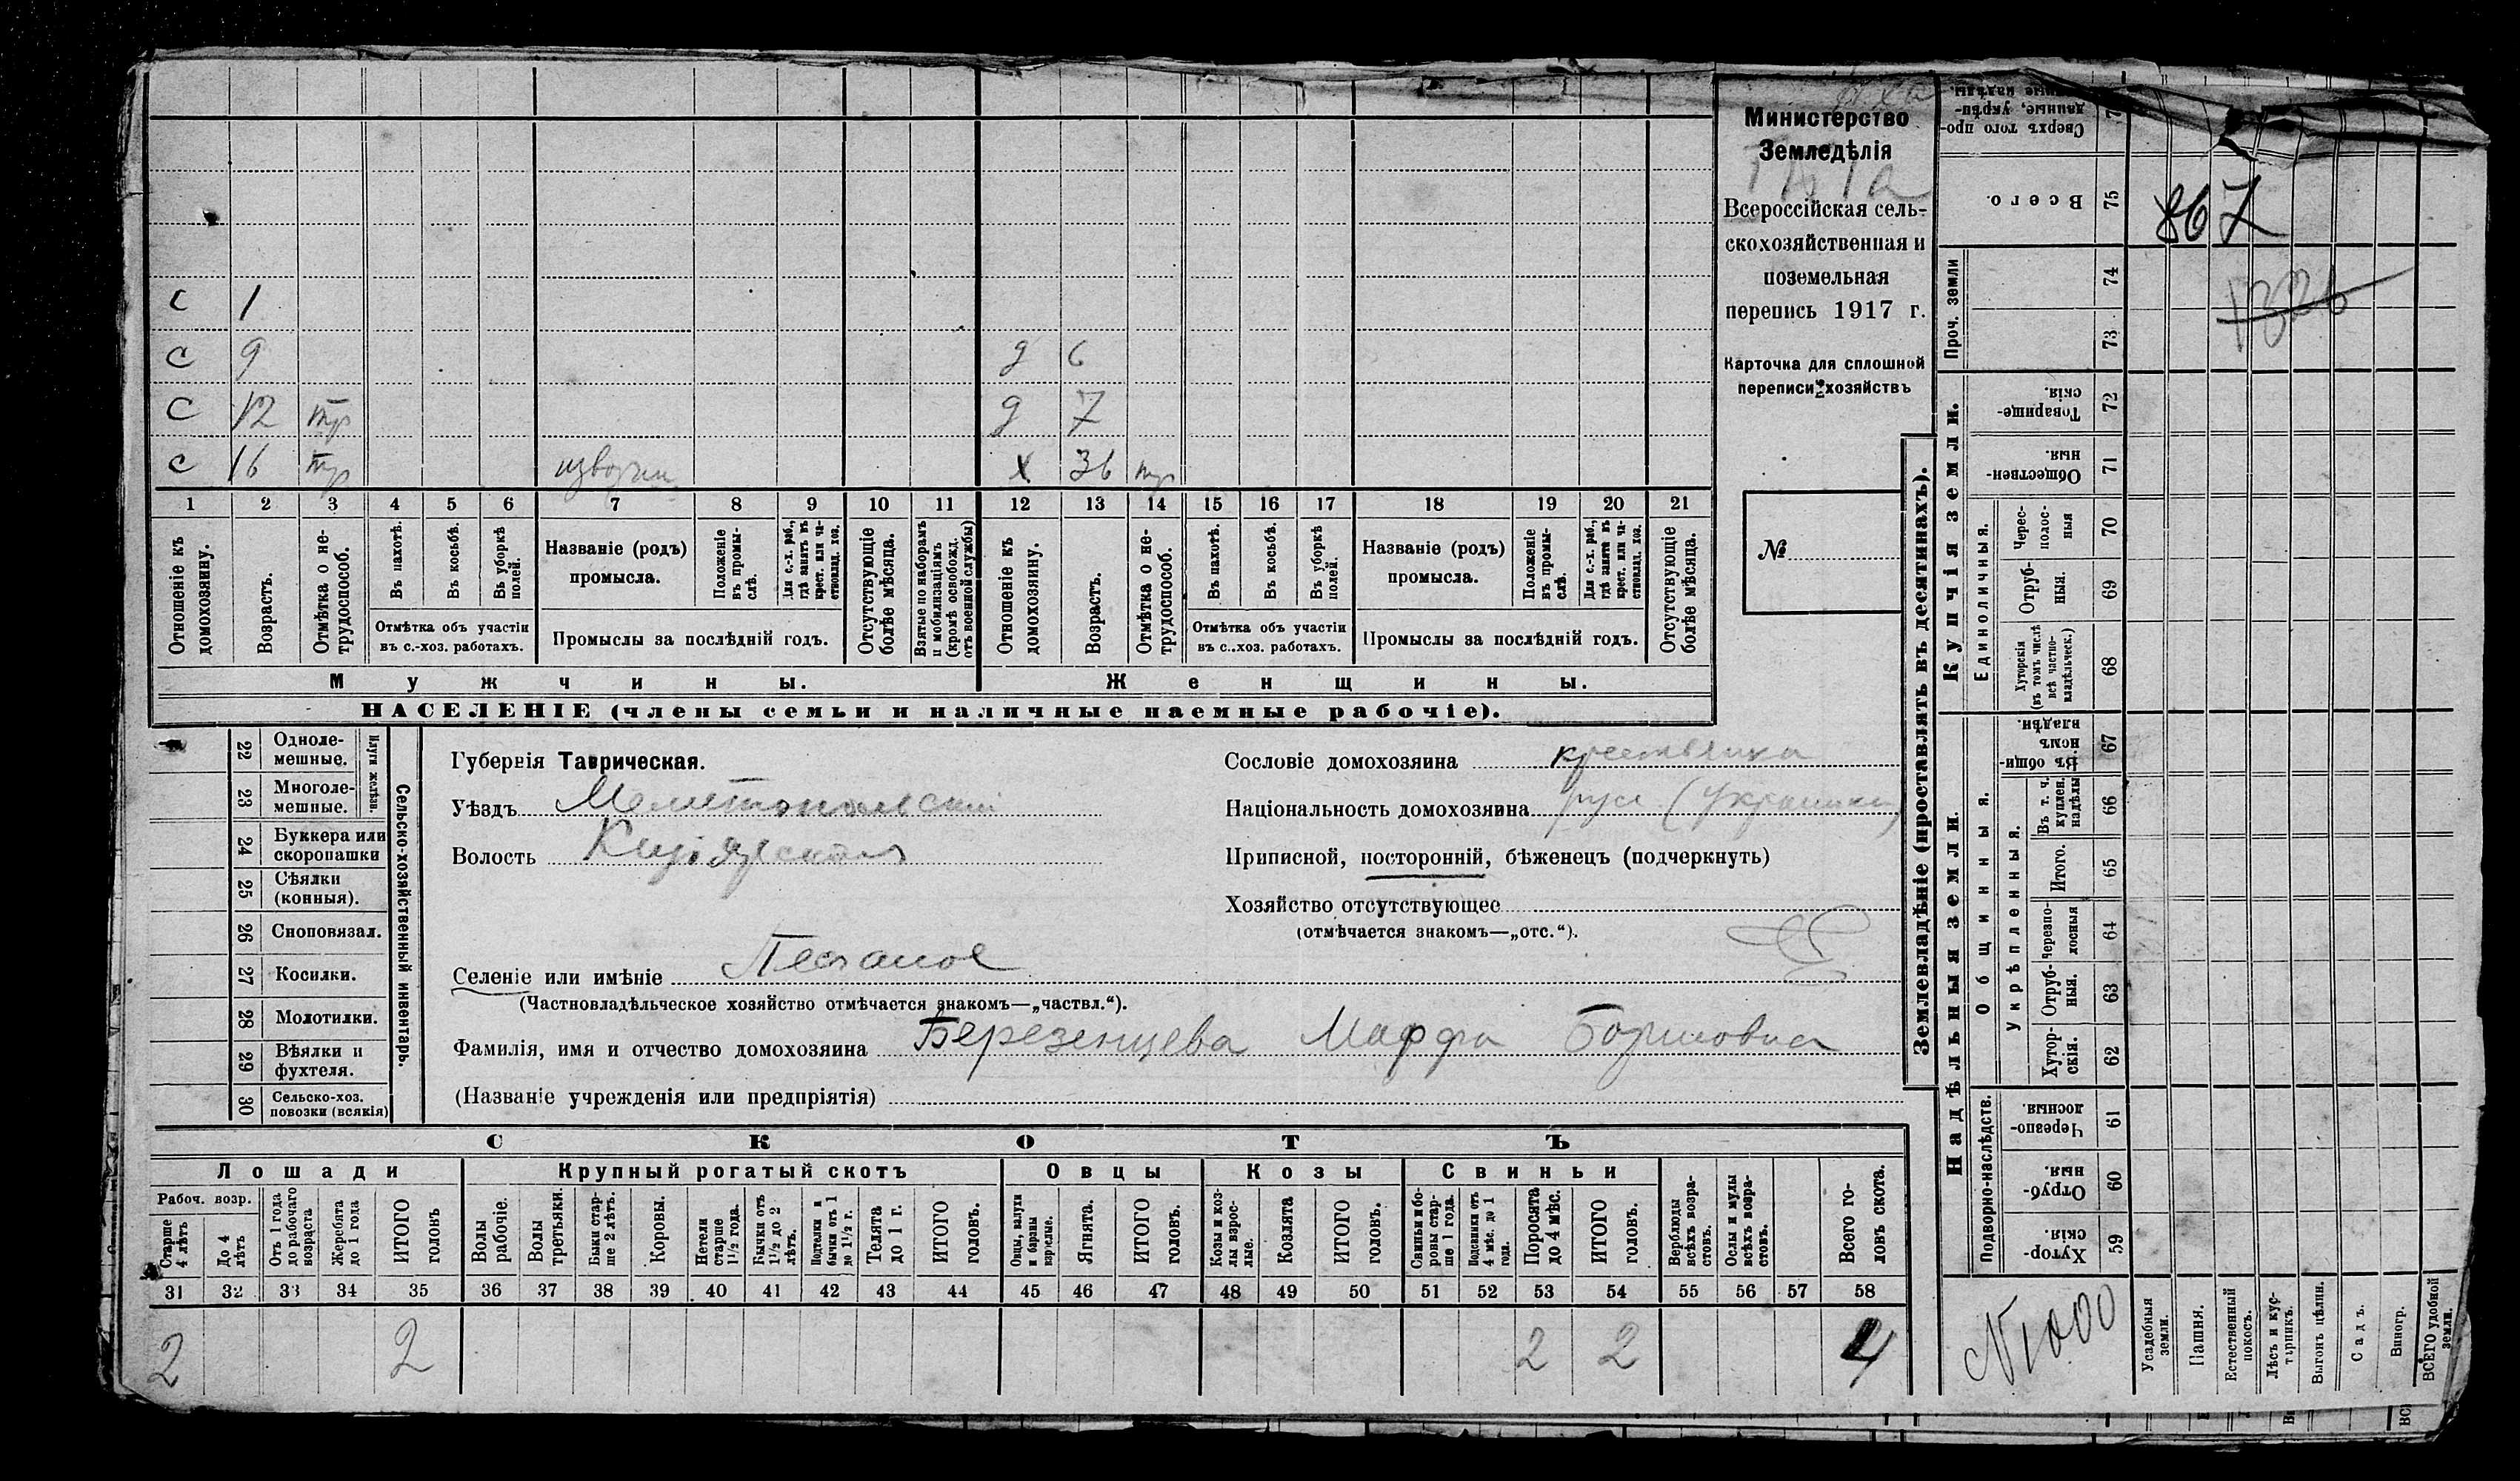 С 1
С 9 д 6
С 12 тр д 7
С 16 тр извозчик х 36 тр
1 2 3 4 5 6 7 8 9 10 11 12 13 14 15 16 17 18 19 20 21
Отношеніе къ домохозяину.
Возрастъ.
Отмѣтка о не-трудоспособ.
Въ пахотѣ.
Въ косьбѣ.
Въ уборкѣ полей.
Отмѣтка объ участіи
въ с.-хоз. работахъ.
Названіе (родъ)
промысла.
Положеніе въ промы-слѣ.
Для с.-х. раб., гдѣ занятъ въ крест. или ча-стновлад. хоз.
Промыслы за послѣдній годъ.
Отсутствующіе болѣе мѣсяца.
Взятые по наборамъ и мобилизаціямъ (кромѣ освобожд. отъ военной службы)
Отношеніе къ домохозяину.
Возрастъ.
Отмѣтка о не-трудоспособ.
Въ пахотѣ.
Въ косьбѣ.
Въ уборкѣ полей.
Отмѣтка объ участіи
въ с.-хоз. работахъ.
Названіе (родъ)
промысла.
Положеніе въ промы-слѣ.
Для с.-х. раб., гдѣ занята въ крест. или ча-стновлад. хоз.
Промыслы за послѣдній годъ.
Отсутствующіе болѣе мѣсяца.
Мужчины. Женщины.
НАСЕЛЕНІЕ (члены семьи и наличные наемные рабочіе).
Министерство
Земледѣлія
Всероссійская сель-
скохозяйственная и
поземельная
перепись 1917 г.
Карточка для сплошной
переписи хозяйствъ
№
Сельско-хозяйственный инвентарь.
Плуги желѣзн.
22 Одноле-мешные.
23 Многоле-мешные.
24 Буккера или скоропашки
25 Сѣялки (конныя).
26 Сноповязал.
27 Косилки.
28 Молотилки.
29 Вѣялки и фухтеля.
30 Сельско-хоз. повозки (всякія)
Губернія Таврическая.
Уѣздъ Мелитопольскій
Волость
Селеніе или имѣніе Песчаное
(Частновладѣльческое хозяйство отмѣчается знакомъ—„частвл.“).
Фамилія, имя и отчество домохозяина Березенцева Марфа Борисовна
(Названіе учрежденія или предпріятія)
Сословіе домохозяина крестьянка
Національность домохозяина русс (украинка)
Приписной, посторонній, бѣженецъ (подчеркнуть)
Хозяйство отсутствующее
(отмѣчается знакомъ—„отс.“).
СКОТЪ
Лошади Крупный рогатый скотъ Овцы Козы Свиньи
Рабоч. возр.
Старше 4 лѣтъ
До 4 лѣтъ
Отъ 1 года до рабочаго возраста
Жеребята до 1 года
ИТОГО головъ
Волы рабочіе.
Волы третьяки.
Быки стар-ше 2 лѣтъ.
Коровы.
Нетели старше 1½ года.
Бычки отъ 1½ до 2 лѣтъ.
Подтелки и бычки отъ 1 до 1½ г.
Телята до 1 г.
ИТОГО головъ.
Овцы, валухи и бараны взрослые.
Ягнята.
ИТОГО головъ.
Козы и коз-лы взрос-лые.
Козлята
ИТОГО головъ.
Свиньи и бо-ровы стар-ше 1 года.
Подсвинки отъ 4 мѣс. до 1 года.
Поросята до 4 мѣс.
ИТОГО головъ.
Верблюды всѣхъ возра-стовъ.
Ослы и мулы всѣхъ возра-стовъ.
Всего го-ловъ скота.
31 32 33 34 35 36 37 38 39 40 41 42 43 44 45 46 47 48 49 50 51 52 53 54 55 56 57 58
2 2 2 2 4
Землевладѣніе (проставлять въ десятинахъ).
Купчія земли.
Надѣльныя земли.
Сверхъ того про-данные, укрѣп-
Всего. 75
867
Проч. земли 74 73
1326
Товарище-скія. 72
Обществен-ныя. 71
Единоличныя.
Черес-полос-ныя 70
Отруб-ныя. 69
Хуторскія (въ томъ числѣ всѣ частно-владѣльческ.) 68
Общинныя.
Въ общи-номъ владѣн. 67
Укрѣпленныя.
Въ т. ч. куплен. надѣлы 66
Итого. 65
Черезпо-лосныя 64
Отруб-ныя. 63
Хутор-скія. 62
Подворно-наслѣдств.
Черезпо-лосныя. 61
Отруб-ныя. 60
Хутор-скія. 59
N1000
Усадебныя земли.
Пашня.
Естественный покосъ.
Лѣсъ и кус-тарникъ.
Выгонъ цѣлин.
Садъ.
Виногр.
ВСЕГО удобной земли.